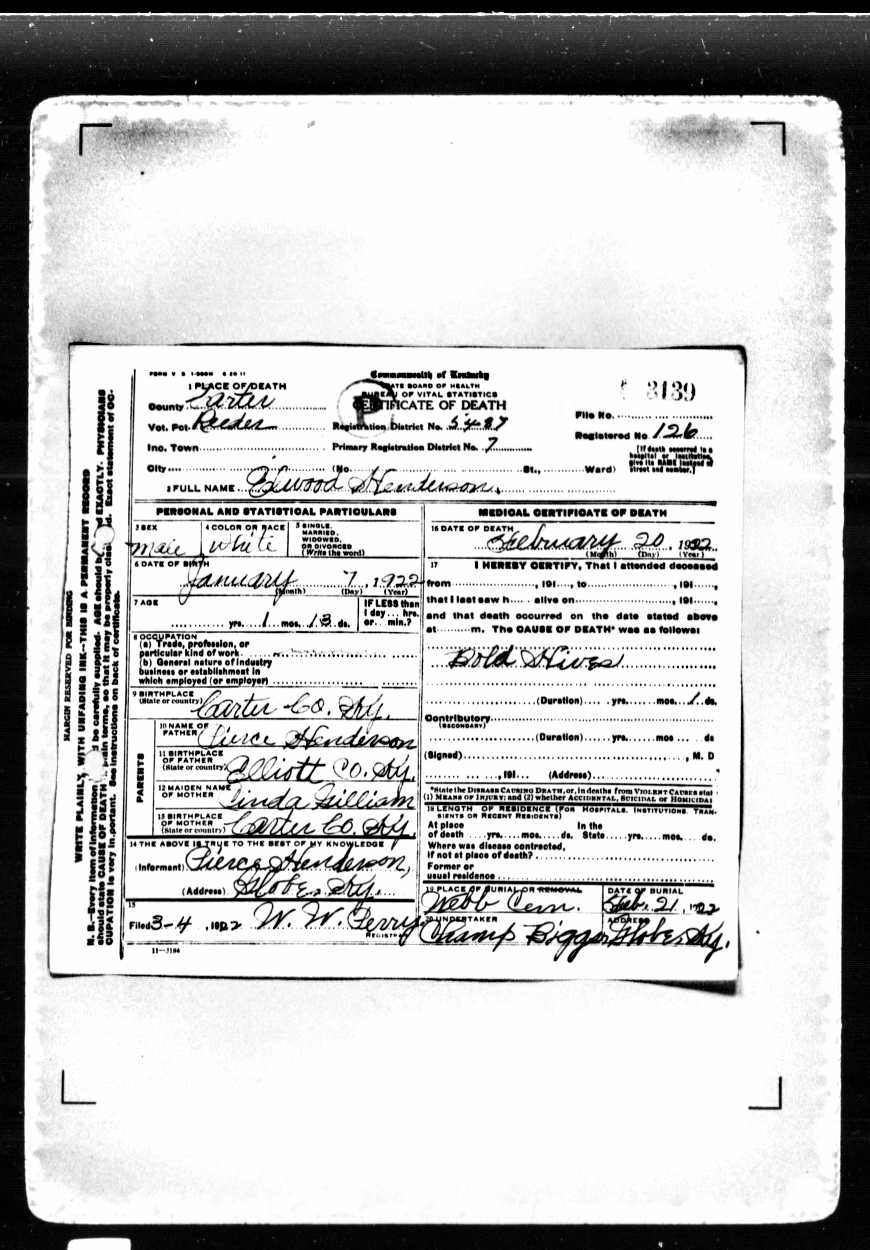 FORM V S 1-500M 8 20 11
Commonwealth of Kentucky
STATE BOARD OF HEALTH
BUREAU OF VITAL STATISTICS
CERTIFICATE OF DEATH
3139
1 PLACE OF DEATH
County Carter
Vot. Pct. Reeder
Inc. Town
City (No. St., Ward)
Registration District No. 5487
Primary Registration District No. 7
File No.
Registered No 126
[If death occurred in a hospital or institution, give its NAME instead of street and number.]
2 FULL NAME Elwood Henderson.
PERSONAL AND STATISTICAL PARTICULARS
3 SEX male
4 COLOR OR RACE White
5 SINGLE, MARRIED, WIDOWED, OR DIVORCED (Write the word)
6 DATE OF BIRTH
January 7, 1922
(Month) (Day) (Year)
7 AGE
yrs. 1 mos. 13 ds.
IF LESS than 1 day... hrs. or... min.?
8 OCCUPATION
(a) Trade, profession, or
particular kind of work
(b) General nature of industry
business or establishment in
which employed (or employer)
9 BIRTHPLACE
(State or country) Carter Co. Ky.
PARENTS
10 NAME OF FATHER Pierce Henderson
11 BIRTHPLACE OF FATHER (State or country) Elliott Co. Ky.
12 MAIDEN NAME OF MOTHER Linda Gilliam
13 BIRTHPLACE OF MOTHER (State or country) Carter Co. Ky.
14 THE ABOVE IS TRUE TO THE BEST OF MY KNOWLEDGE
(Informant) Pierce Henderson,
(Address) Globe, Ky.
15
Filed 3-4, 1922 W. W. Perry
REGISTRAR
11—3184
MEDICAL CERTIFICATE OF DEATH
16 DATE OF DEATH
February 20, 1922
(Month) (Day) (Year)
17 I HEREBY CERTIFY, That I attended deceased
from , 191 , to , 191 ,
that I last saw h alive on , 191 ,
and that death occurred on the date stated above
at m. The CAUSE OF DEATH* was as follows:
Bold Hives
(Duration) yrs. mos. 1 ds.
Contributory
(SECONDARY)
(Duration) yrs. mos ds
(Signed) , M. D
, 191 (Address)
*State the DISEASE CAUSING DEATH, or, in deaths from VIOLENT CAUSES stat
(1) MEANS OF INJURY; and (2) whether ACCIDENTAL, SUICIDAL or HOMICIDAL
18 LENGTH OF RESIDENCE (FOR HOSPITALS, INSTITUTIONS, TRAN-
SIENTS OR RECENT RESIDENTS)
At place of death yrs. mos. ds. In the State yrs. mos. ds.
Where was disease contracted,
if not at place of death?
Former or
usual residence
19 PLACE OF BURIAL OR REMOVAL
Webb Cem.
DATE OF BURIAL
Feb. 21, 1922
20 UNDERTAKER
Champ Bigger
ADDRESS
Globe, Ky.
MARGIN RESERVED FOR BINDING
WRITE PLAINLY, WITH UNFADING INK—THIS IS A PERMANENT RECORD
N. B.—Every item of information be carefully supplied. AGE should b EXACTLY. PHYSICIANS
should state CAUSE OF DEATH in terms, so that it may be properly Exact statement of OC-
CUPATION is very important. See instructions on back of certificate.